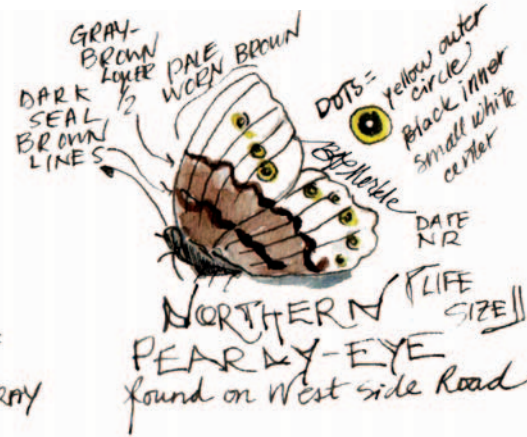 GRAY-
BROWN
LOWER
1/2
PALE
WORN BROWN
DARK
SEAL
BROWN
LINES
DOTS =
yellow outer
circle
Black inner
small white
center
DATE
NR
NORTHERN
PEARLY-EYE
LIFE
SIZE
found on West Side Road
RAY